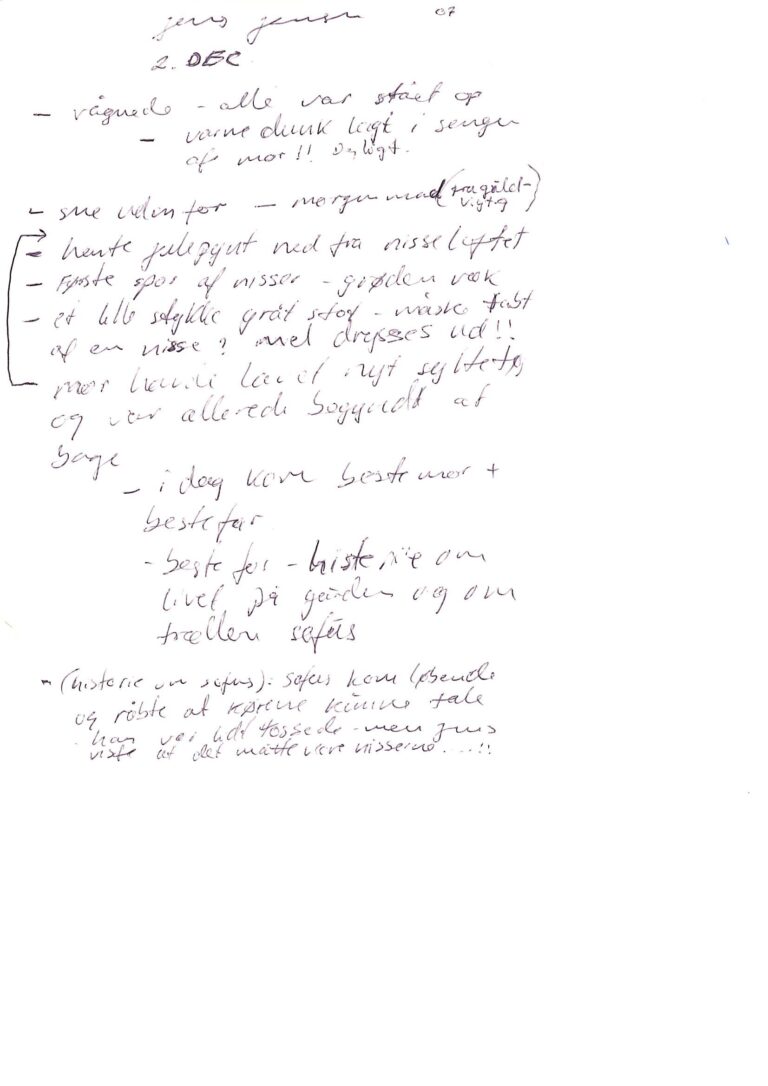 jens jensen 07
2. DEC
- vågnede - alle var stået op
- varme dunk lagt i sengen
af mor!! Dejligt.
- sne uden for - morgenmad
- hente julepynt ned fra nisseloftet
- Første spor af nisser - grøden væk
- et lille stykke gråt stof - måske tabt
af en nisse? ud!!
mor havde lavet nyt syltetøj
og var allerede begyndt at
bage
- i dag kom bestemor +
bestefar
- bestefar - historie om
livet på gården og om
trællen sofus
- (historie om sofus): sofus kom løbende
og råbte at køerne kunne tale
han var lidt tosset - men jens
viste at det måtte være nisserne....!!